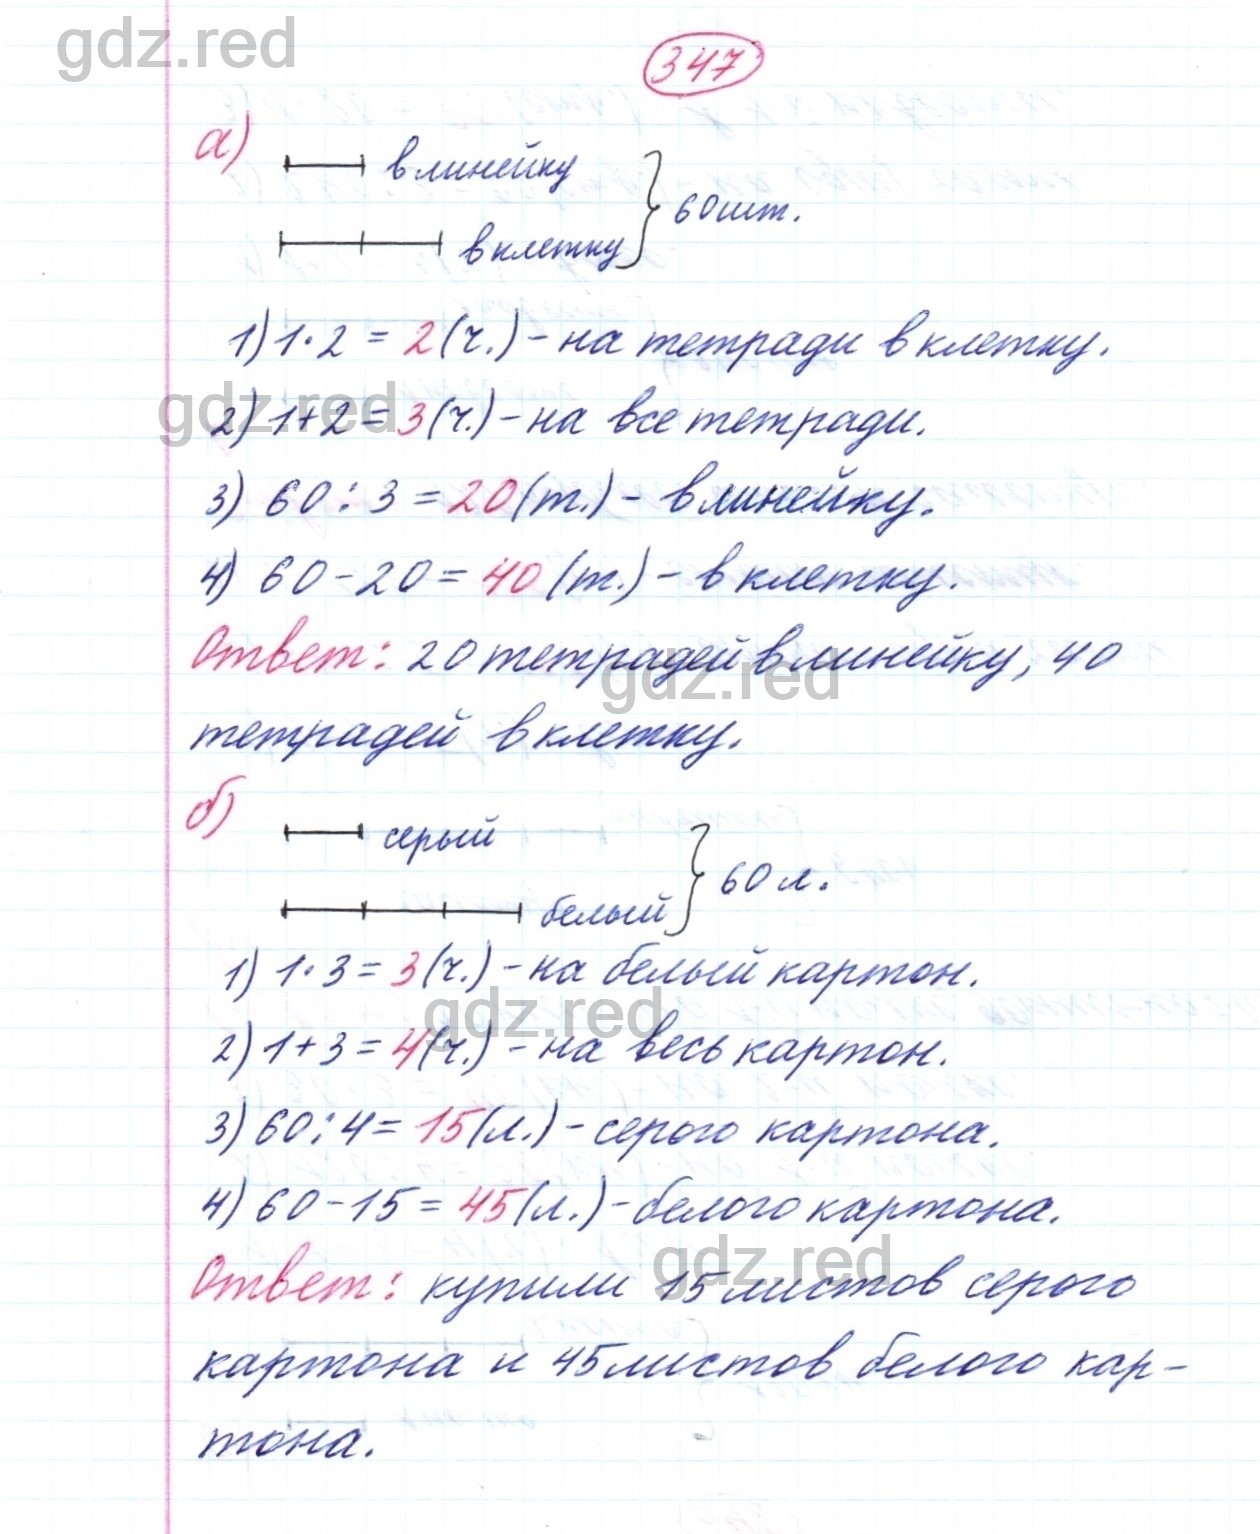 gdz.red
347
а)
в линейку
60 шт.
в клетку
1) 1·2 = 2 (ч.) – на тетради в клетку.
gdz.red
2) 1+2 = 3 (ч.) – на все тетради.
3) 60 : 3 = 20 (т.) – в линейку.
4) 60 – 20 = 40 (т.) – в клетку.
Ответ: 20 тетрадей в линейку, 40
gdz.red
тетрадей в клетку.
б)
серый
60 л.
белый
1) 1·3 = 3 (ч.) – на белый картон.
gdz.red
2) 1+3 = 4 (ч.) – на весь картон.
3) 60 : 4 = 15 (л.) – серого картона.
4) 60 – 15 = 45 (л.) – белого картона.
gdz.red
Ответ: купили 15 листов серого
картона и 45 листов белого кар-
тона.